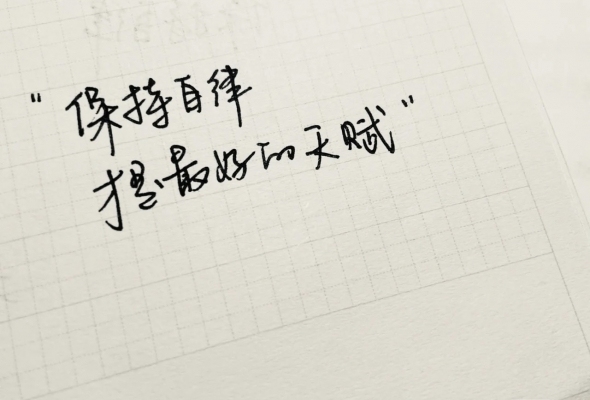 “保持自律
才是最好的天赋”